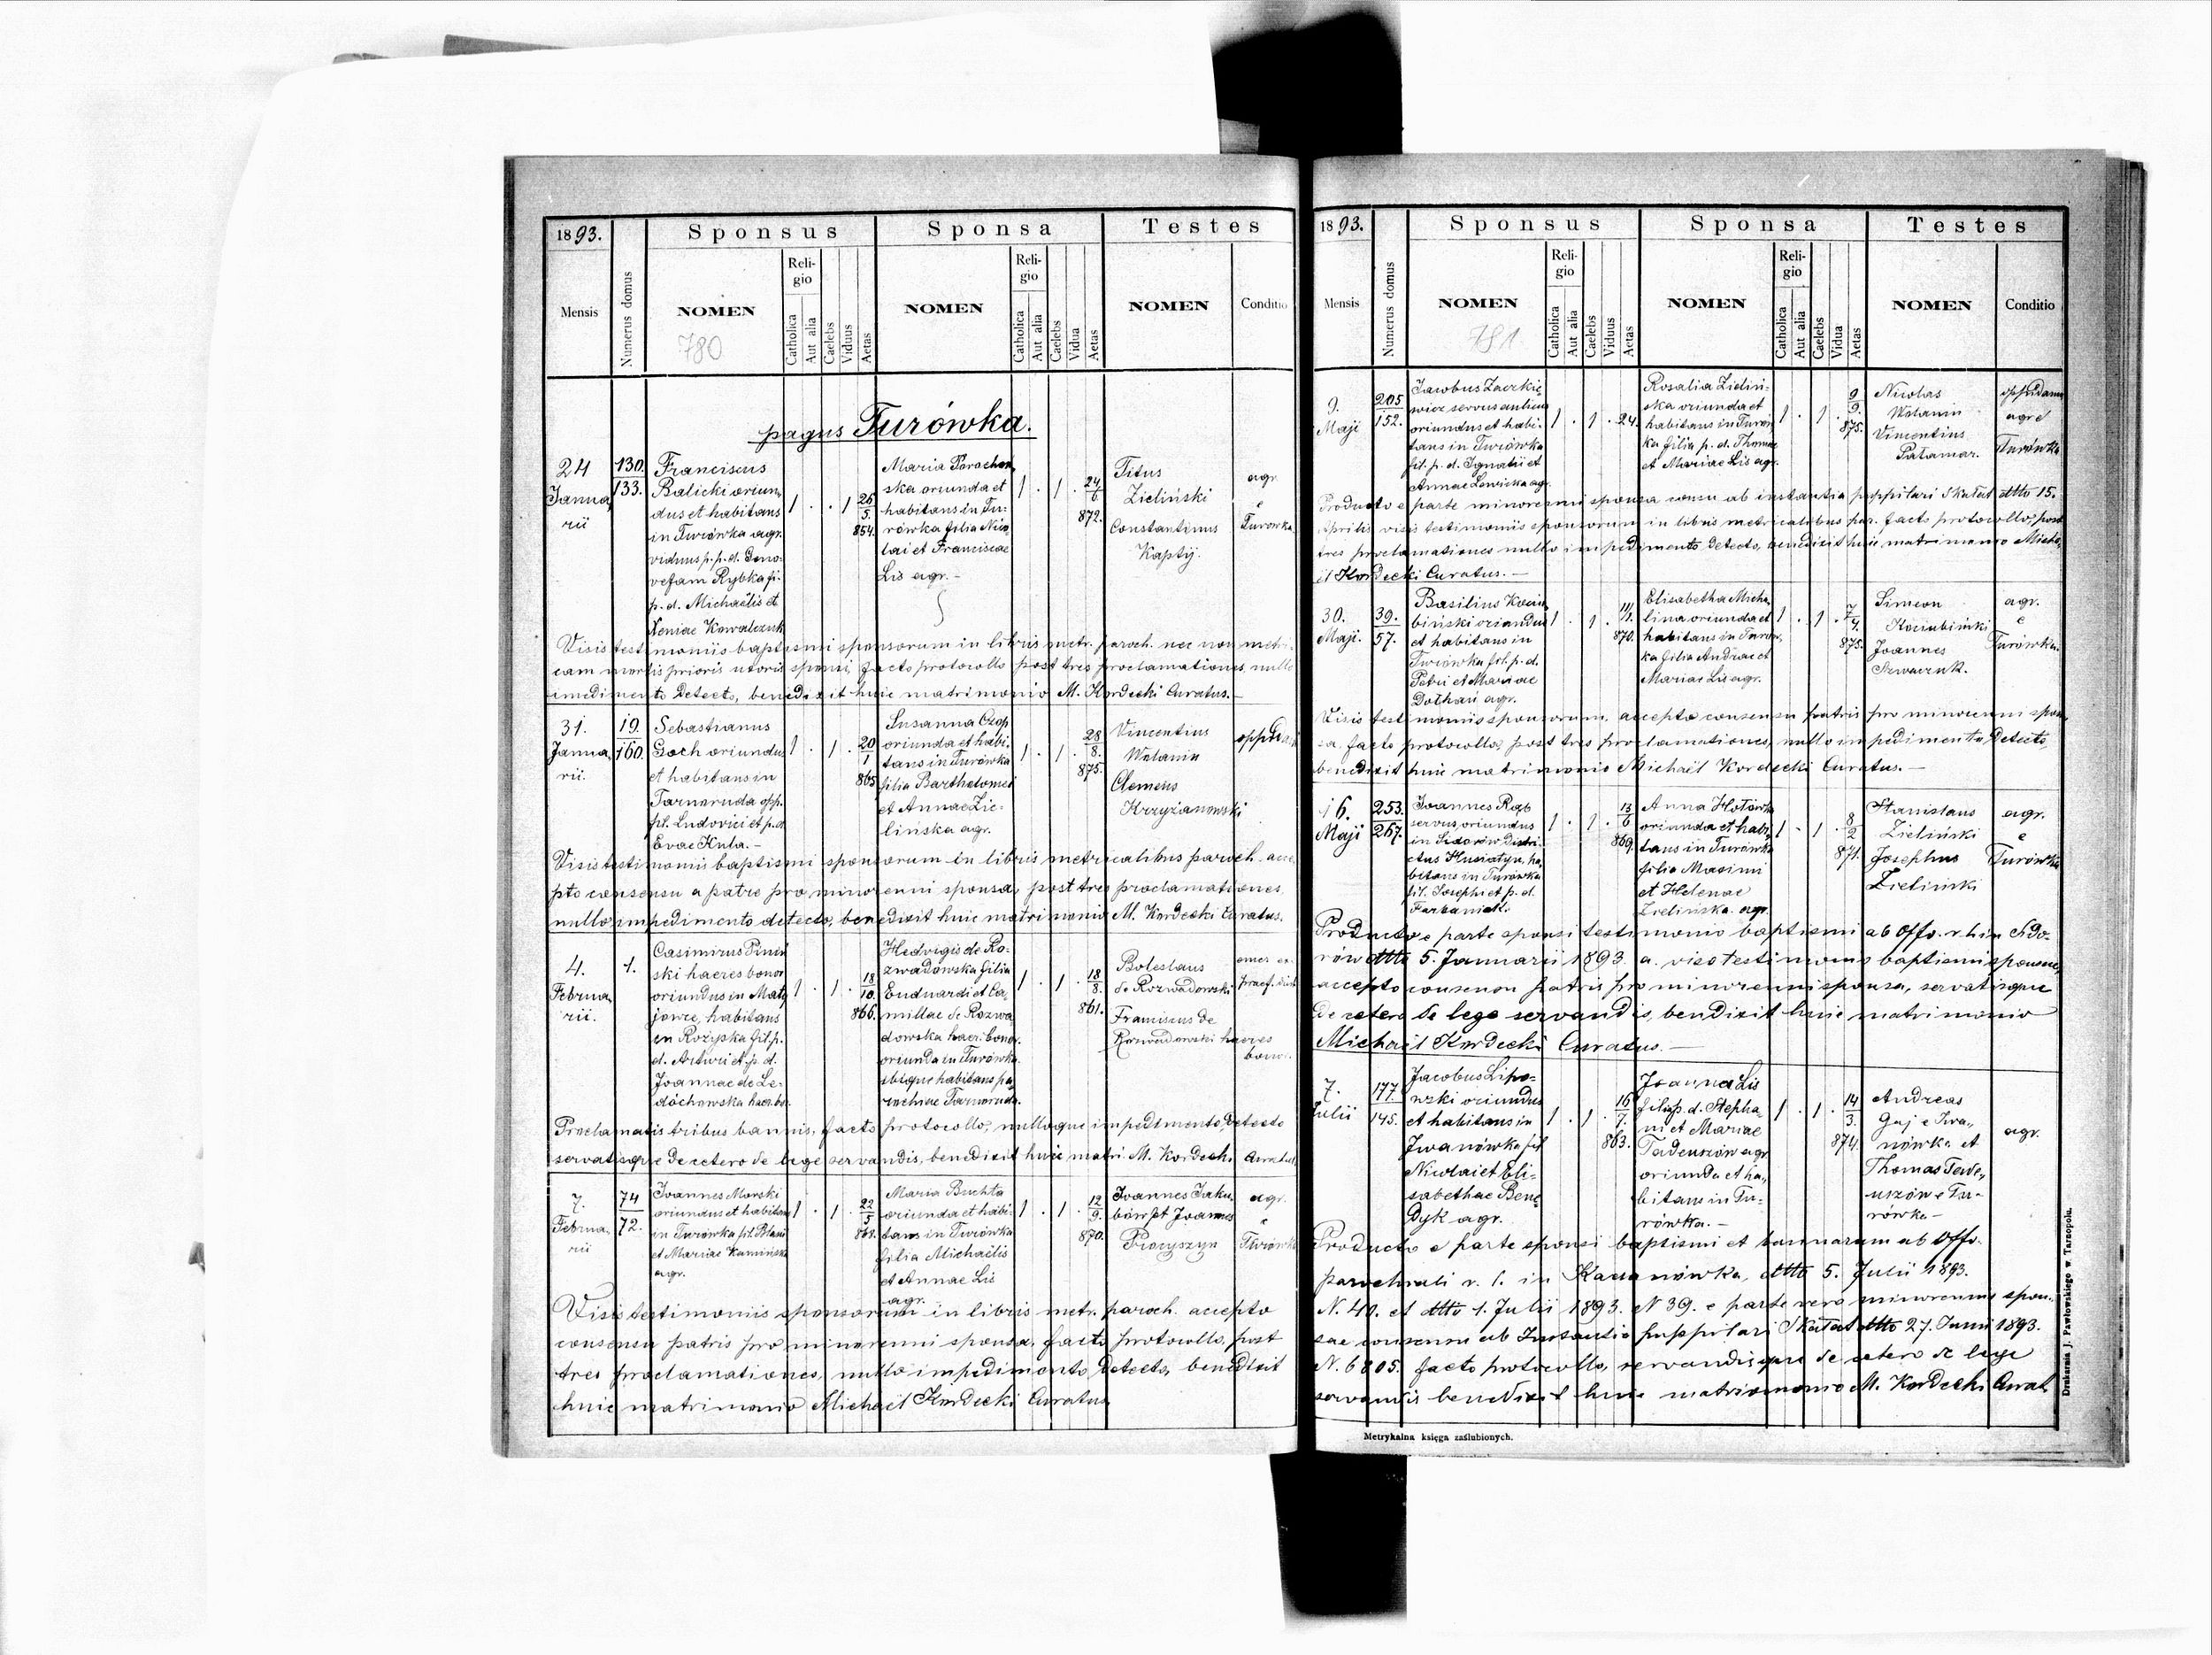 1893.
Sponsus
Sponsa
Testes
Mensis
Numerus domus
NOMEN
Religio
Catholica
Aut alia
Caelebs
Viduus
Aetas
NOMEN
Religio
Catholica
Aut alia
Caelebs
Vidua
Aetas
NOMEN
Conditio
780
pagus Turówka.
24
Januarii
130.
133.
Franciscus
Balicki oriun-
dus et habitans
in Turówka agr.
viduus p. p. d. Geno-
vefam Rybka fi.
p. d. Michaëlis et
Xeniae Kowalczuk
1 . . 1
25
5.
854.
Maria Parachon-
ska oriunda et
habitans in Tu-
rówka filia Nico-
lai et Franciscae
Lis agr. -
1 . 1 .
24
6
872.
Titus
Zieliński
Constantinus
Kaptij.
agr.
e
Turówka
Visis testimoniis baptismi sponsorum in libris metr. paroch. nec non metri-
cam mortis prioris uxoris sponsi, facto protocollo post tres proclamationes, nullo
imedimento detecto, benedixit huic matrimonio M. Kordecki Curatus.-
31.
Janua-
rii.
19.
160.
Sebastianus
Goch oriundus
et habitans in
Tarnoruda opp.
fil. Ludovici et p. d.
Evae Kula. -
1 . 1 .
20
1
865
Susanna Czop
oriunda et habi-
tans in Turówka
filia Barthelomei
et Annae Zie-
lińska agr.
1 . 1 .
28
8.
875.
Vincentius
Wolanin
Clemens
Krzyżanowski
Visis testimoniis baptismi sponsorum in libris metricalibus paroch. acce-
pto consensu a patre pro minorenni sponsa, post tres proclamationes
nullo impedimento detecto, benedixit huic matrimonio M. Kordecki Curatus.
4.
Februa-
rii.
1.
Casimirus Pinin-
ski haeres bonor
oriundus in Maty-
jowce, habitans
in Rożyska fil. p.
d. Arturi et p. d.
Joannae de Le-
dóchowska haer. bo.
1 . 1 .
18
10.
866.
Hedvigis de Ro-
zwadowska filia
Eduardi et Ca-
millae de Rozwa-
dowska haer. bonor
oriunda in Turówka
ibique habitans pa-
rochiae Tarnoruda.
1 . 1 .
18
8.
861.
Boleslaus
de Rozwadowski
Franciscus de
Rozwadowski haeres
bonor.
Proclamatis tribus bannis, facto protocollo, nulloque impedimento detecto
servatisque de cetero de lege servandis, benedixit huic matri. M. Kordecki Curatus
7.
Februa-
rii
74
72.
Joannes Morski
oriundus et habitans
in Turówka fil. Blasii
et Mariae Kamińska
agr.
1 . 1 .
22
5
Maria Buchta
oriunda et habi-
tans in Turówka
filia Michaëlis
et Annae Lis
agr.
1 . 1 .
12
9.
870.
Joannes Jaku-
bów et Joannes
Procyszyn
agr.
e
Turówka
Visis testimoniis sponsorum in libris metr. paroch. accepto
consensu patris pro minorenni sponsa, facto protocollo, post
tres proclamationes, nullo impedimento detecto, benedixit
huic matrimonio Michaël Kordecki Curatus
1893.
Sponsus
Sponsa
Testes
Mensis
Numerus domus
NOMEN
Religio
Catholica
Aut alia
Caelebs
Viduus
Aetas
NOMEN
Religio
Catholica
Aut alia
Caelebs
Vidua
Aetas
NOMEN
Conditio
781
9.
Maji
205
152.
Jacobus Zaczkie-
wicz servus aulicus
oriundus et habi-
tans in Turówka
fil. p. d. Ignatii et
Annae Lewicka agr.
1 . 1 . 24.
Rosalia Zielin-
ska oriunda et
habitans in Turów-
ka filia p. d. Thomae
et Mariae Lis agr.
1 . 1 .
9
9.
875.
Nicolas
Wolanin
Vincentius
Patamar.
oppidanus
agr e
Turówka
Producto e parte minorenni sponsa consu ab instantia puppilari Skałat dtto 15.
Aprilis visis testimoniis sponsorum in libris metricalibus par. facto protocollo, post
tres proclamationes nullo impedimento detecto, benedixit huic matrimonio Micha-
ël Kordecki Curatus. -
30.
Maji.
39.
57.
Basilius Kociu-
biński oriundus
et habitans in
Turówka fil. p. d.
Petri et Mariae
Dothań agr.
1 . 1 .
11
11.
870.
Elisabetha Micha-
lina oriunda et
habitans in Turów-
ka filia Andreae et
Mariae Lis agr.
1 . 1 .
7
4.
875.
Simeon
Kociubiński
Joannes
Szwaczuk.
agr.
e
Turówka.
Visis testimoniis sponsorum, accepto consensu patris pro minorenni spon-
sa, facto protocollo, post tres proclamationes, nullo impedimento detecto
benedixit huic matrimonio Michaël Kordecki Curatus. -
16.
Maji
253.
267.
Joannes Rąb
servus, oriundus
in Sidorów Distri-
ctus Husiatyn, ha-
bitans in Turówka
fil. Josephi et p. d.
Farbaniak.
1 . 1 .
13
6
869.
Anna Hołówka
oriunda et habi-
tans in Turówka
filia Maximi
et Helenae
Zielińska agr.
1 . 1 .
8
2
871.
Stanislaus
Zieliński
Josephus
Zieliński
agr.
e
Turówka
Producto e parte sponsi testimonio baptismi ab Offo. r. l. in Sido-
rów dtto 5. Januarii 1893. a. viso testimonio baptismi sponsae,
accepto consensu patris pro minorenni sponsa, servatisque
de cetero de lege servandis, bendixit huic matrimonio
Michaël Kordecki Curatus. -
7.
Julii
177.
145.
Jacobus Lipo-
wzki oriundus
et habitans in
Iwanówka fil
Nicolai et Eli-
sabethae Bene-
dyk agr.
1 . 1 .
16
7.
863.
Joanna Lis
filia p. d. Stepha-
ni et Mariae
Tadeuszów agr
oriunda et ha-
bitans in Tu-
rówka. -
1 . 1 .
14
3.
874.
Andreas
Gaj e Iwa-
nówka et
Thomas Tade-
uszów e Tu-
rówka -
agr.
Producto e parte sponsi baptismi et bannorum ab Offo.
parochiali r. l. in Kaczanówka, dtto 5. Julii 1893.
N. 40. et dtto 1. Julii 1893. N 39. e parte vero minorennis spon-
sae consensu ab Instantia puppilari Skałat dtto 27. Junii 1893.
N. 6805. facto protocollo, servandisque de cetero de lege
servandis benedixit huic matrimonio M. Kordecki Curat.
Metrykalna księga zaślubionych.
Drukarnia J. Pawłowskiego w Tarnopolu.